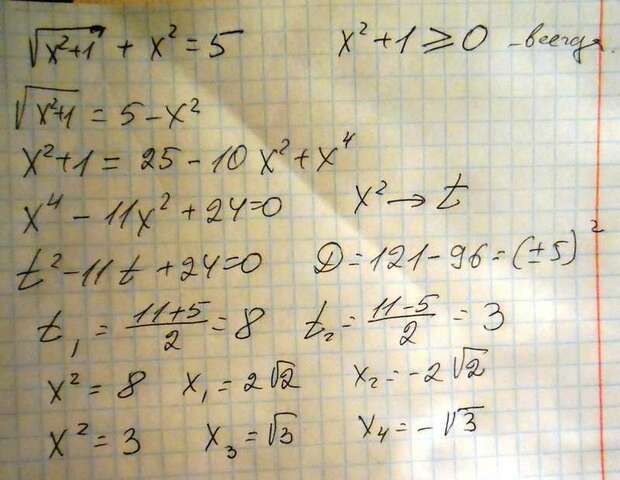 √(x²+1) + x² = 5 x²+1 ⩾ 0 – всегда.
√(x²+1) = 5 – x²
x²+1 = 25 – 10x² + x⁴
x⁴ – 11x² + 24=0 x² → t
t² – 11t + 24=0 D = 121 – 96 = (±5)²
t₁ = (11+5)/2 = 8 t₂ = (11–5)/2 = 3
x² = 8 x₁ = 2√2 x₂ = –2√2
x² = 3 x₃ = √3 x₄ = –√3